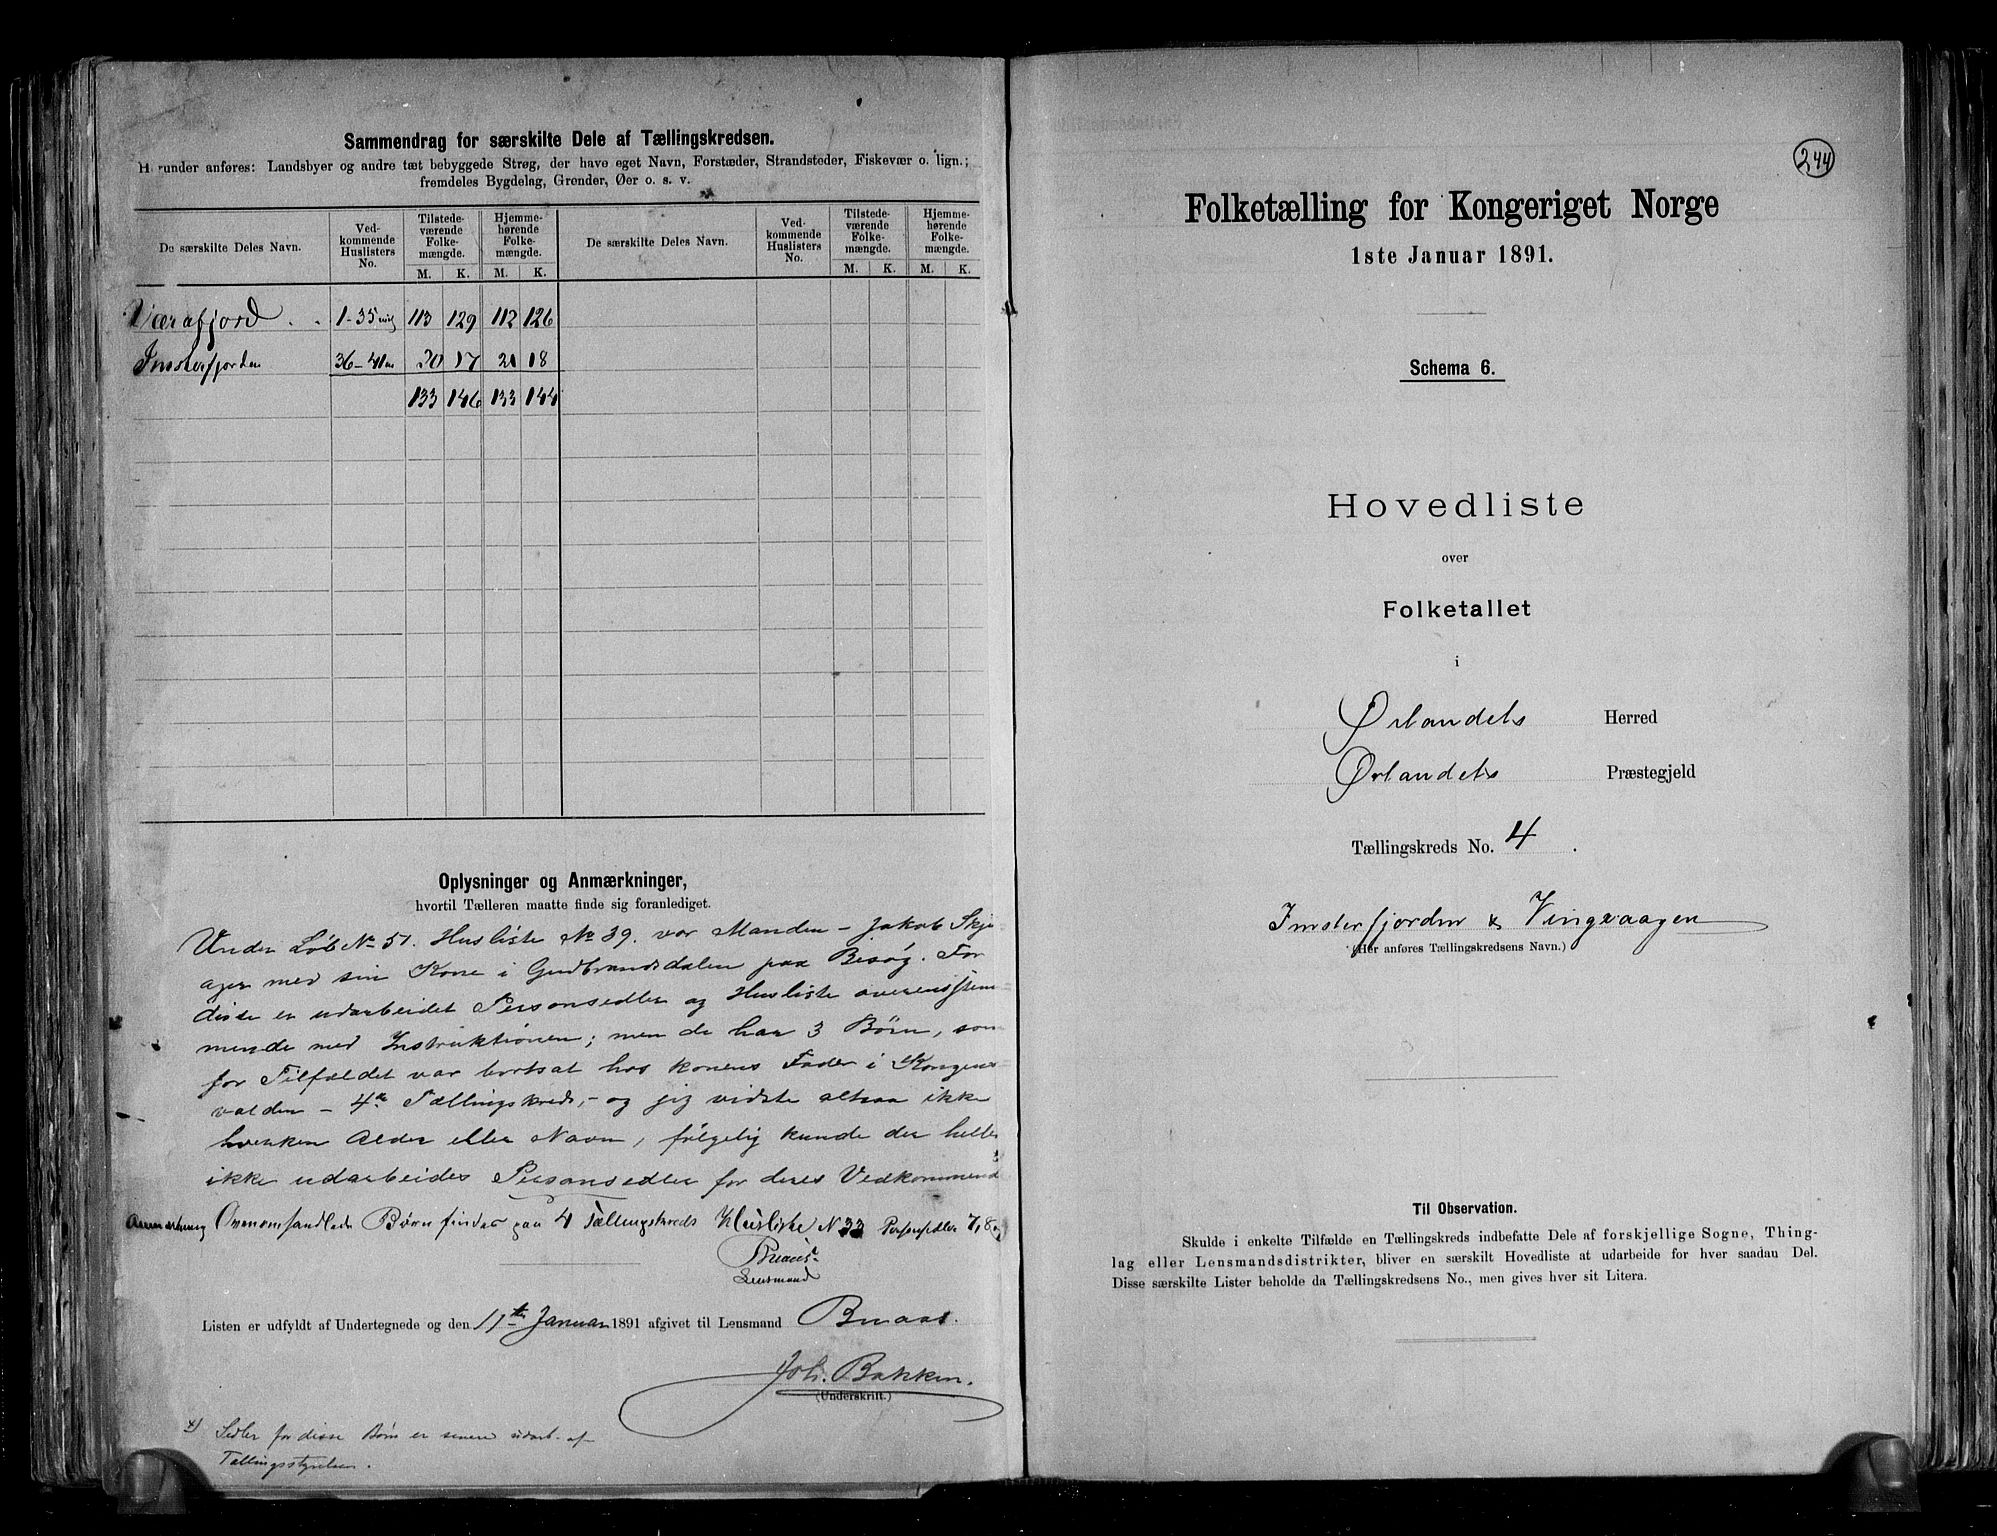 Sammendrag for særskilte Dele af Tællingskredsen.
Herunder anføres: Landsbyer og andre tæt bebyggede Strøg, der have eget Navn, Forstæder, Strandsteder, Fiskevær o. lign.;
fremdeles Bygdelag, Grender, Øer o. s. v.
De særskilte Deles Navn. Ved-kommende Huslisters No. Tilstede-værende Folke-mængde. Hjemme-hørende Folke-mængde. De særskilte Deles Navn. Ved-kommende Huslisters No. Tilstede-værende Folke-mængde. Hjemme-hørende Folke-mængde.
M. K. M. K. M. K. M. K.
Værafjord 1-35 113 129 112 126
Imsterfjorden 36-41 20 17 21 18
133 146 133 144
Oplysninger og Anmærkninger,
hvortil Tælleren maatte finde sig foranlediget.
Under Løb No 51. Husliste No 39. var Manden - Jakob Skje
ager med sin Kone i Gudbrandsdalen paa Besøg. For
disse er udarbeidet Personsedler og Husliste overensstem
mende med Instruktionen; men de har 3 Børn, som
for Tilfældet var bortsat hos konens Fader i Kongens
valden - 4de Tællingskreds, - og jeg vidste altsaa ikke
hverken Alder eller Navn, følgelig kunde der heller
ikke udarbeides Personsedler for deres Vedkommende
Anmærkning Ovenomhandlede Børn findes paa 4 Tællingskreds Husliste N 33 Personsedler 7, 8,
Lensmand
Listen er udfyldt af Undertegnede og den 11te Januar 1891 afgivet til Lensmand Bmaas.
Joh. Bakken.
(Underskrift.)
x) Sedler for disse Børn er senere udarb. af
Tællingsstyrelsen.
244
Folketælling for Kongeriget Norge
1ste Januar 1891.
Schema 6.
Hovedliste
over
Folketallet
i
Ørlandets Herred
Ørlandets Præstegjeld
Tællingskreds No. 4.
Imsterfjorden & Vingvaagen
(Her anføres Tællingskredsens Navn.)
Til Observation.
Skulde i enkelte Tilfælde en Tællingskreds indbefatte Dele af forskjellige Sogne, Thing-
lag eller Lensmandsdistrikter, bliver en særskilt Hovedliste at udarbeide for hver saadan Del.
Disse særskilte Lister beholde da Tællingskredsens No., men gives hver sit Litera.